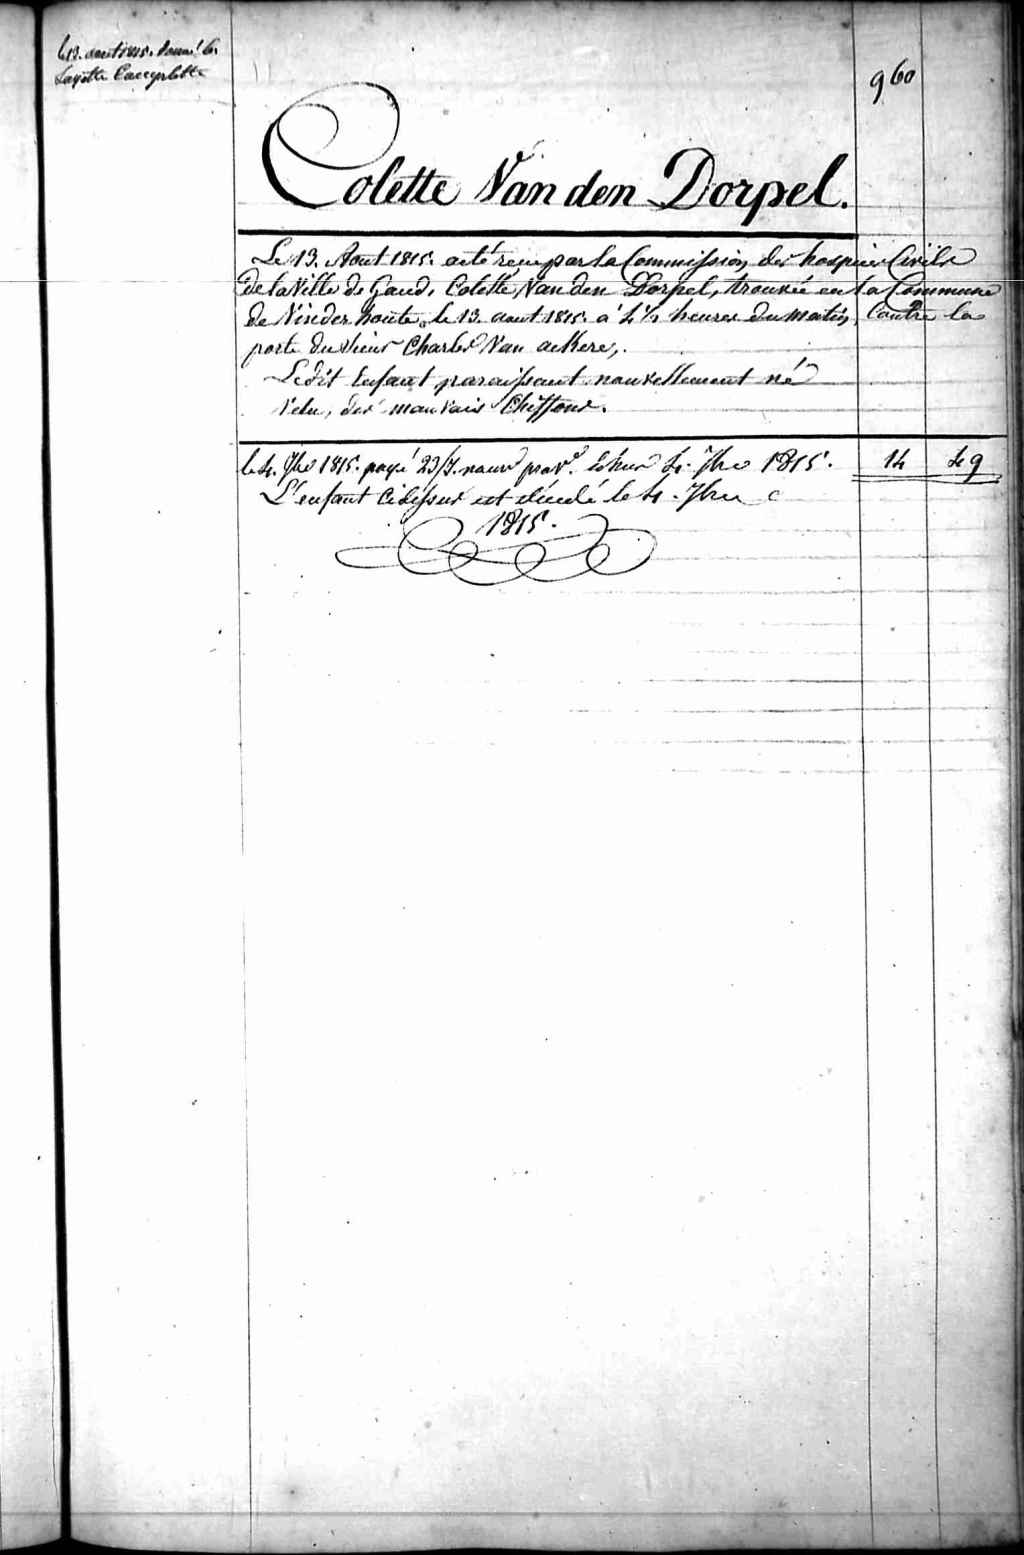 le 13. aout 1815. donné la
Layette Complette
960
Colette Van den Dorpel.
Le 13. Aout 1815. a eté reçu par la Commission des hospices Civils
de la Ville de Gand, Colette Van den Dorpel, trouvée en la Commune
de Vinderhoute, le 13. aout 1815. a 4 1/2 heures du matin, Contre la
porte du sieur Charles Van ackere,.
Ledit Enfant paraissant nouvellement né
Vetu, des mauvais Chiffons.
le 4. 7bre 1815. payé 23/J. nour 4. 7bre 1815. 14 49
L'enfant cidessus est décedé le 4. 7bre
1815.